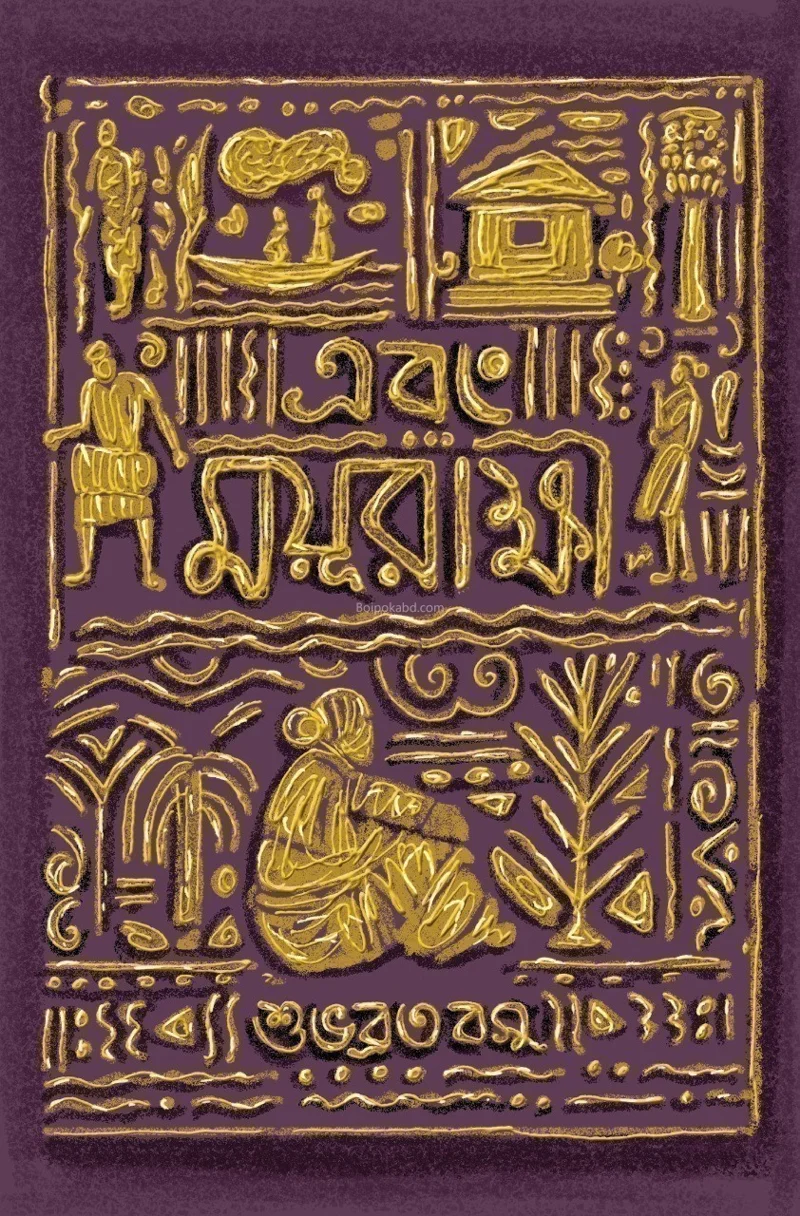 এবং
ময়ূরাক্ষী
Boipokabd.com
শুভব্রত বসু